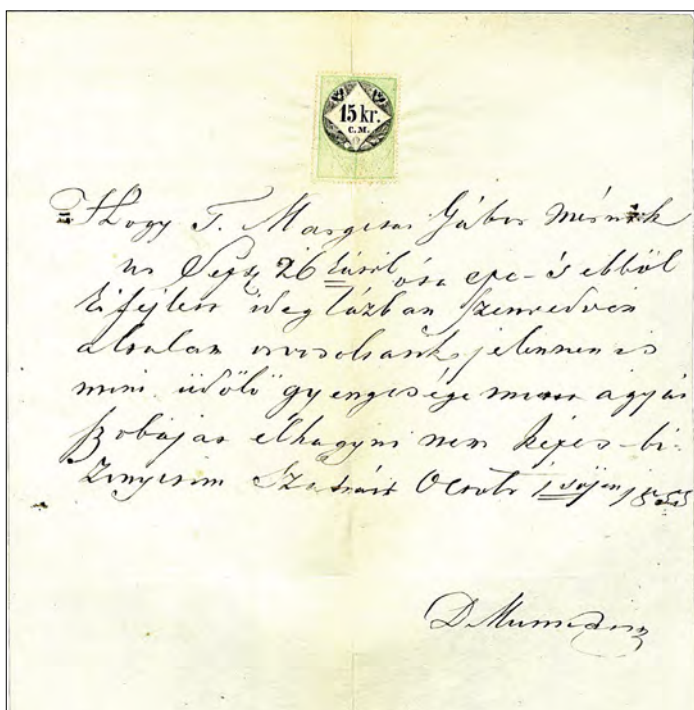 15 kr.
C. M.
Hogy T. Gábor mérnök
ur Sept 26 ától óta epe- s ebből
kifejlett ideg lázban szenvedvén
általam orvosoltatik, jelennen is
mint üdölő gyengesége miatt ágyát
Szobáját elhagyni nem képes - bi-
zonyitom Octob 1 1855
D